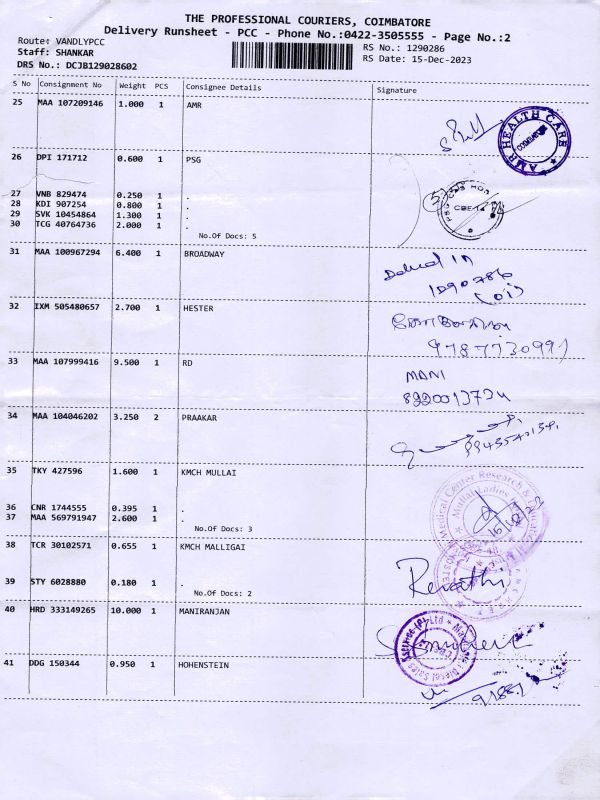 THE PROFESSIONAL COURIERS, COIMBATORE
Delivery Runsheet - PCC - Phone No.:0422-3505555 - Page No.:2
Route: VANDLYPCC
Staff: SHANKAR
DRS No.: DCJB129028602
RS No.: 1290286
RS Date: 15-Dec-2023
S No Consignment No Weight PCS Consignee Details Signature
25 MAA 107209146 1.000 1 AMR
AMR HEALTH CARE
COIMBATORE
26 DPI 171712 0.600 1 PSG
27 VNB 829474 0.250 1 .
28 KDI 907254 0.800 1 .
29 SVK 10454864 1.300 1 .
30 TCG 40764736 2.000 1 .
No.Of Docs: 5
31 MAA 100967294 6.400 1 BROADWAY
1290286
32 IXM 505480657 2.700 1 HESTER
9787730991
33 MAA 107999416 9.500 1 RD
MANI
34 MAA 104046202 3.250 2 PRAAKAR
35 TKY 427596 1.600 1 KMCH MULLAI
Medical Center Research &
Mullai Ladies
36 CNR 1744555 0.395 1 .
37 MAA 569791947 2.600 1 .
No.Of Docs: 3
38 TCR 30102571 0.655 1 KMCH MALLIGAI
Revathi
39 STY 6028880 0.180 1 .
No.Of Docs: 2
40 HRD 333149265 10.000 1 MANIRANJAN
Diesel Sales
41 DDG 150344 0.950 1 HOHENSTEIN